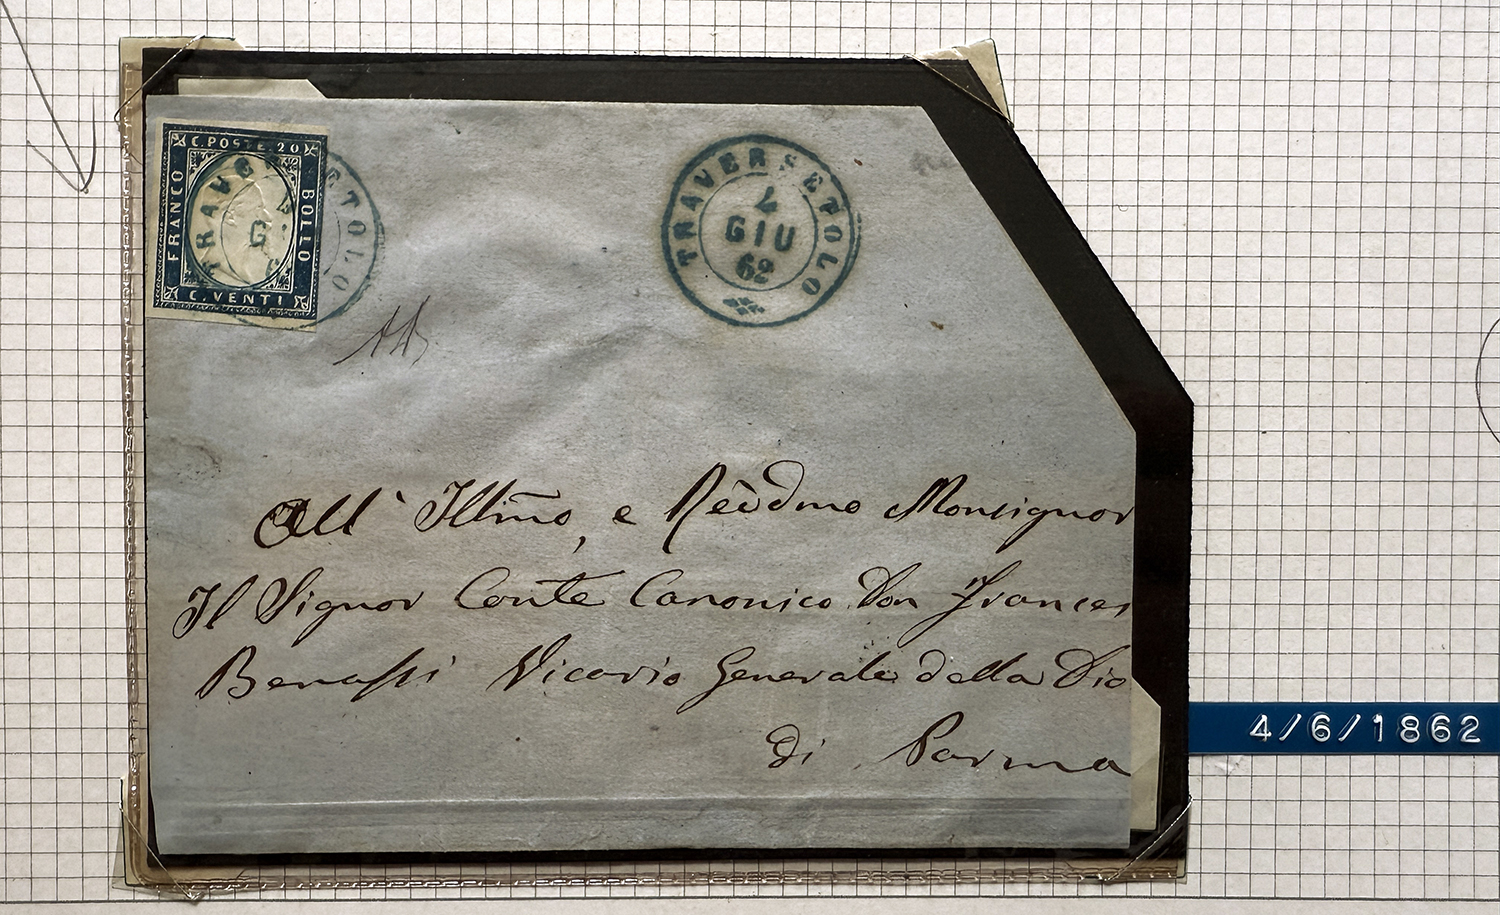 C. POSTE. 20
FRANCO
BOLLO
C. VENTI
TRAVERSETOLO
G.
6
TRAVERSETOLO
4
GIU
62
All' Illm̃o, e Rẽv̀dmo Monsignor
Il Signor Conte Canonico Don Frances
Benassi Vicario Generale della Dio
di Parma
4/6/1862